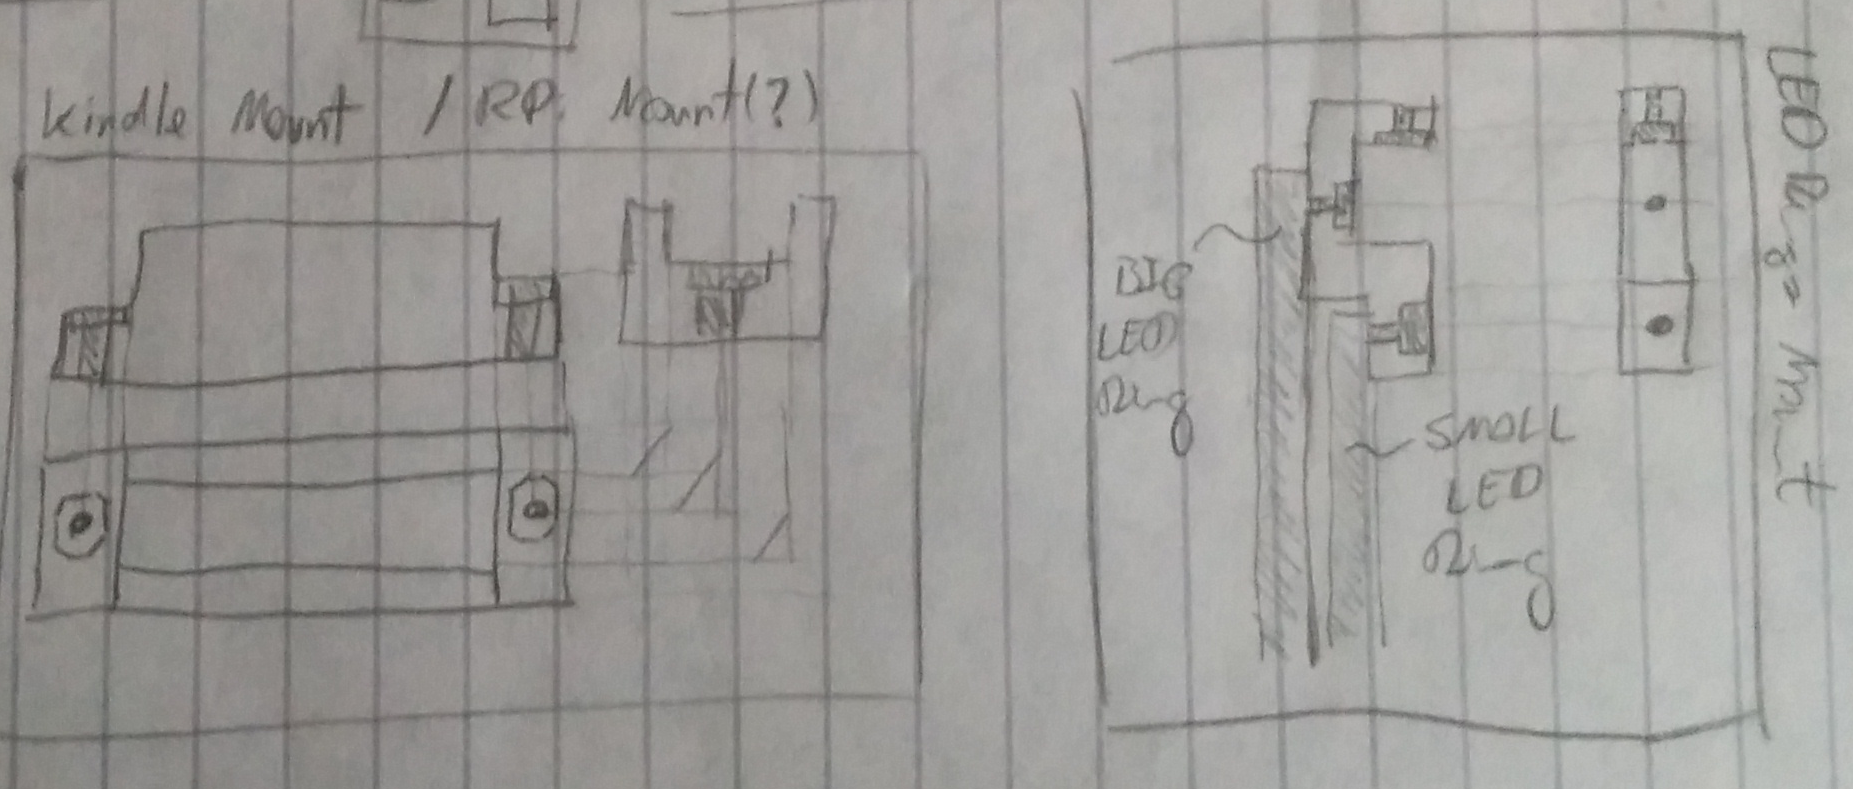 Kindle Mount / RP. Mount(?)
BIG
LED
Ring
SMALL
LED
Ring
LED Rings Mount